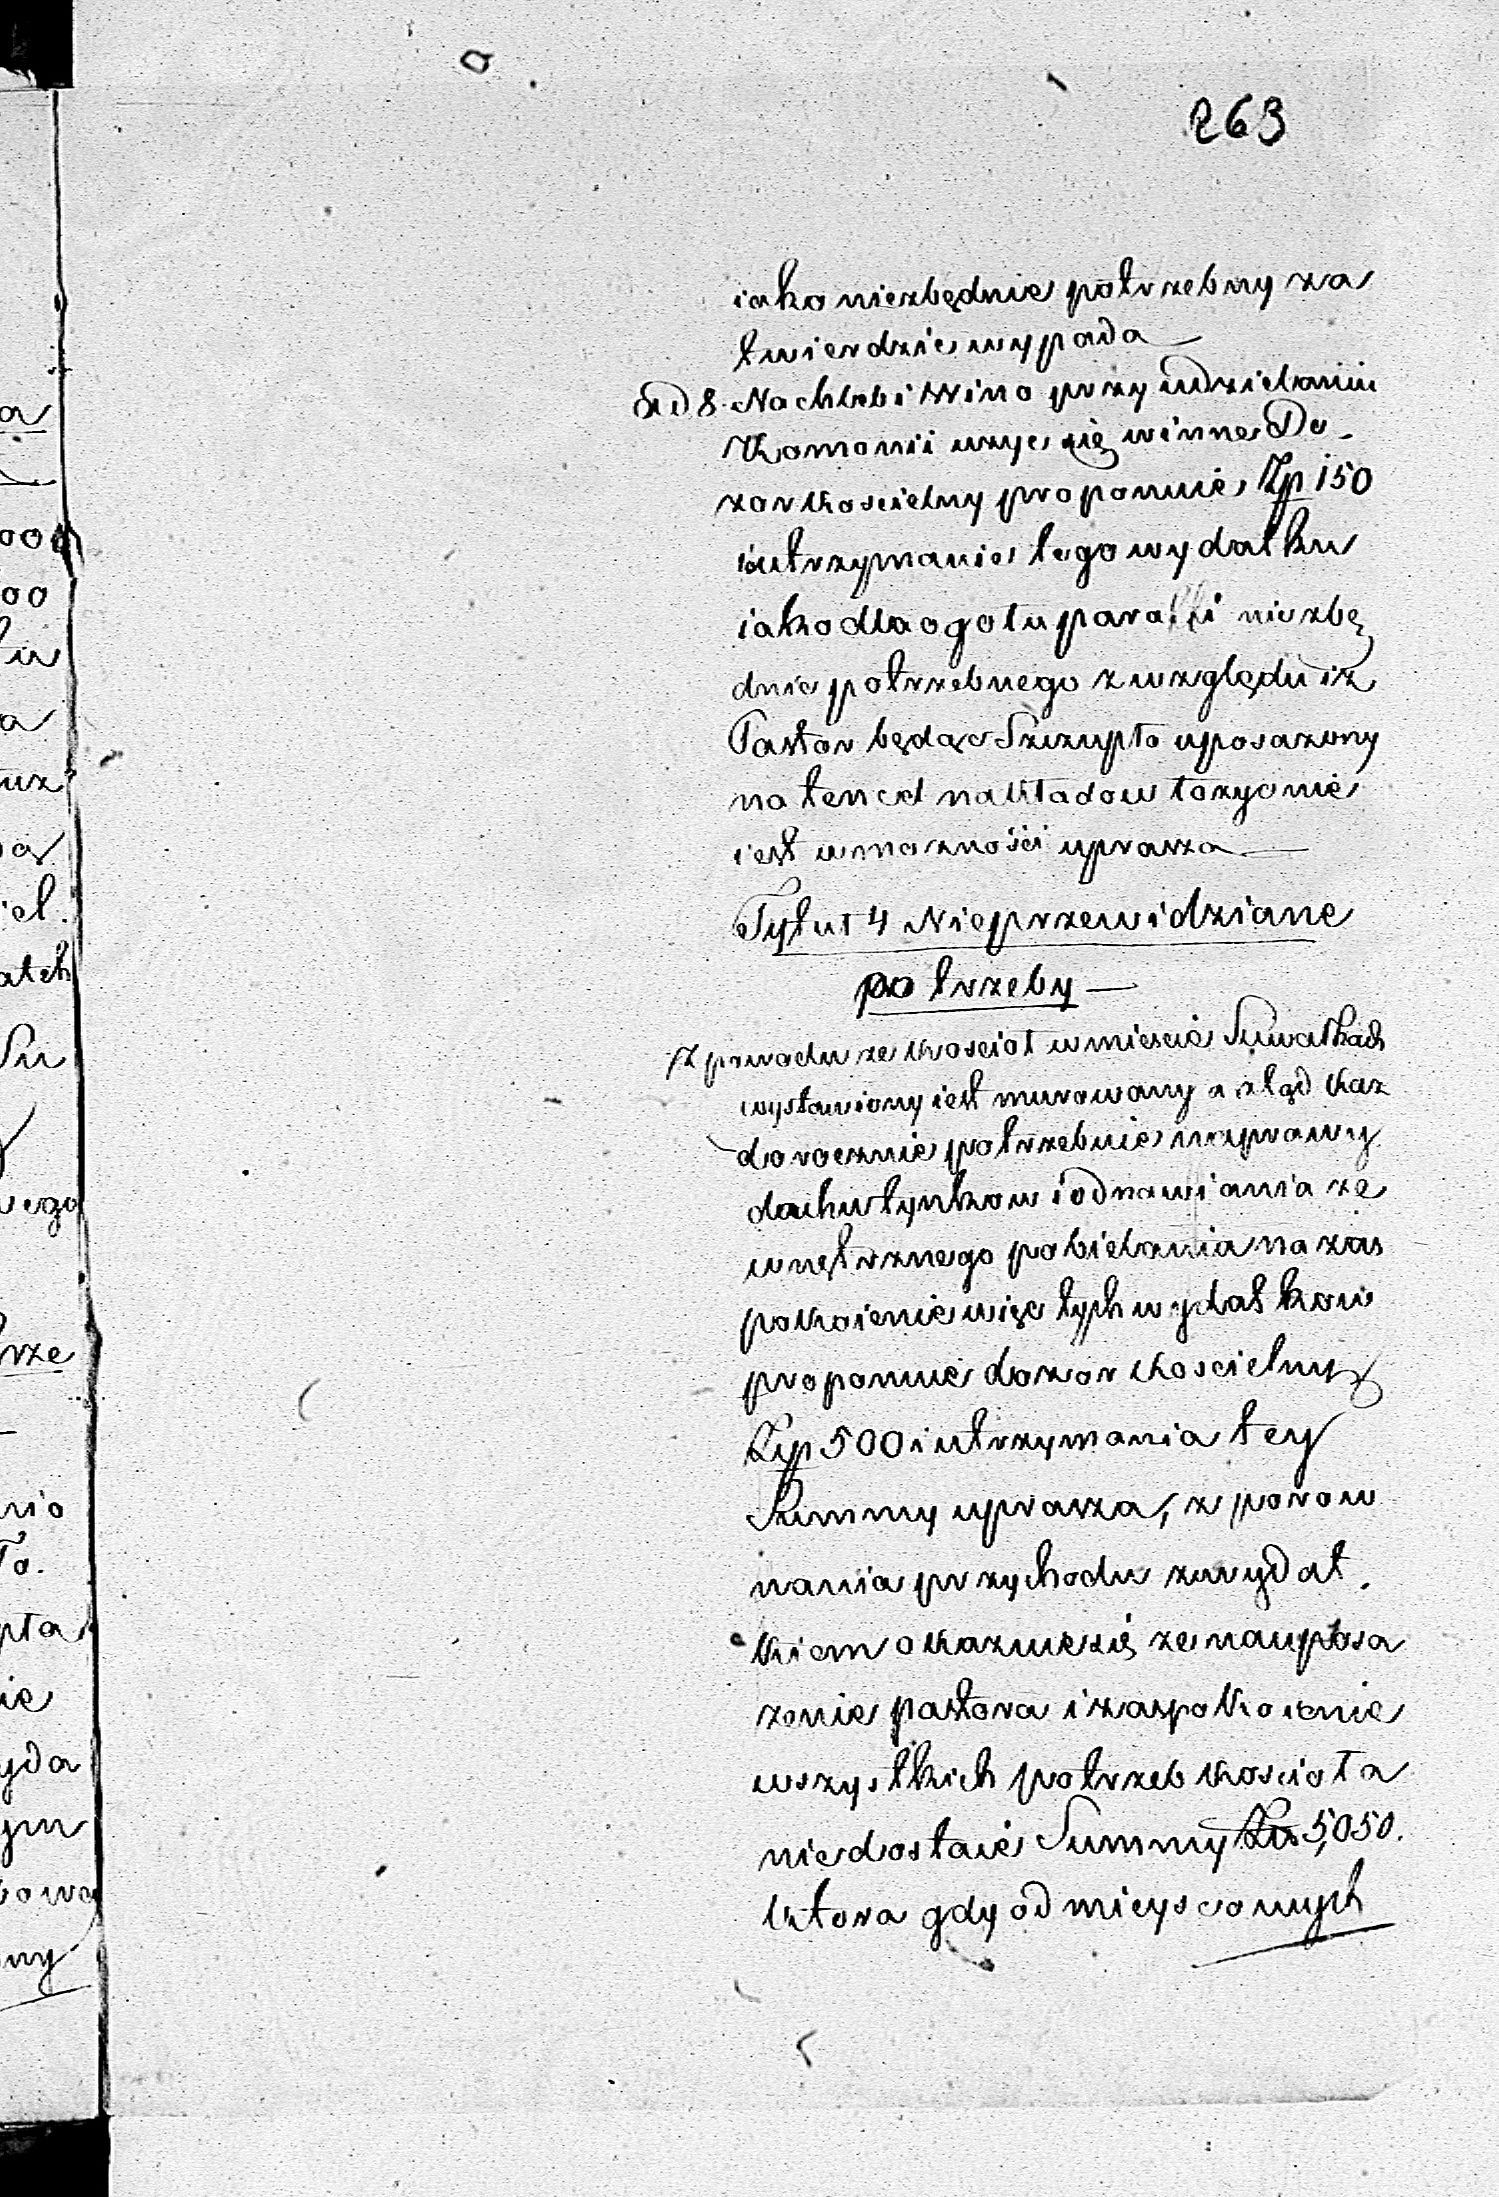 263
iako niezbędnie potrzebny za
twierdzic wypada
ad 8. Na chleb i wino przy udzielaniu
Komonii uzyc się winne Do
zor Koscielny proponuie Zp 150
i utrzymanie tego wydatku
iako dla ogołu parafii niezbę
dnie potrzebnego z względu iz
Pastor będąc Szczupło uposazony
na ten cel nakładow łozyc nie
iest w mozności uprasza
Tytuł 4 Nieprzewidziane
potrzeby
Z powodu ze Kosciol w miescie Suwałkach
wystawiony iest murowany a ztąd Kaz
dorocznie potrzebuie naprawy
dachu tynkow i odnawiania ze
wnętrznego pobielania na zas
pokoienie więc tych wydatkow
proponuie dozor Koscielny
Zp 500 i utrzymania tey
Summy uprasza, z porow
nania przychodu z wydat
kiem okazuie się ze na uposa
zenie pastora i zaspokoienie
wszystkich potrzeb Koscioła
niedostaie Summy 5,050.
Ktora gdy od mieyscowych